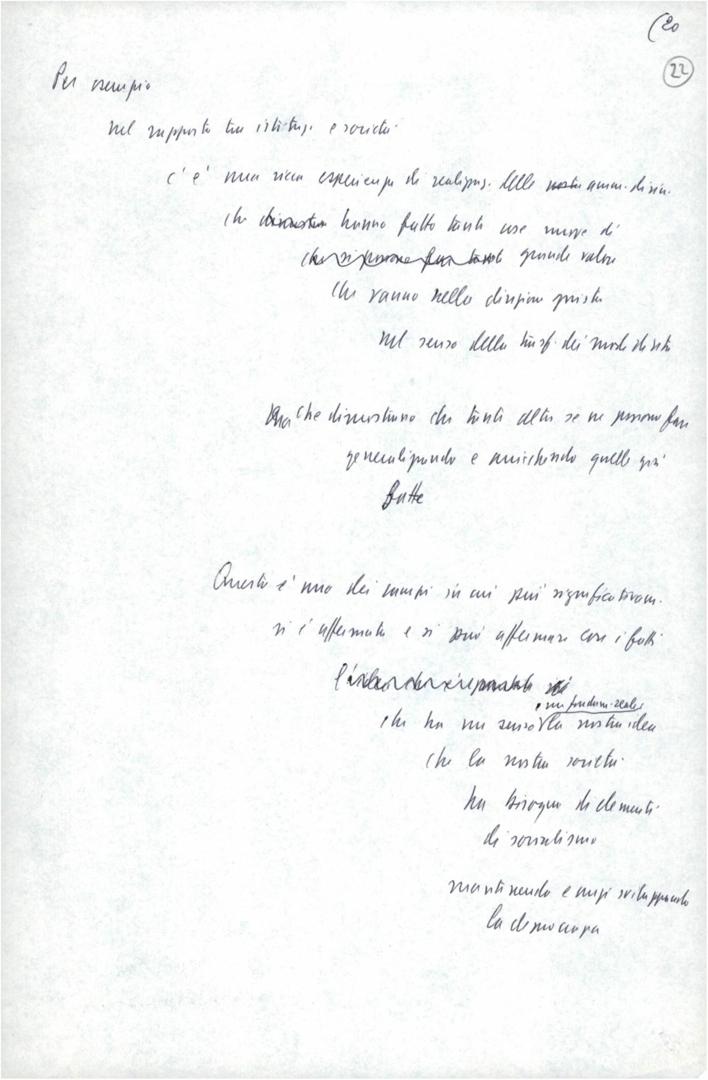 (20
22
Per esempio
nel rapporto tra istituz. e società
c'è una ricca esperienza di realizzaz. delle nostre amm. di sin.
che dimostra hanno fatto tante cose nuove di
che si possono fare tante grande valore
che vanno nella direzione giusta
nel senso della trasf. dei modi di vita
Ma che dimostrano che tante altre se ne possono fare
generalizzando e arricchendo quelle già
fatte
Questo è uno dei campi in cui più significativam.
si è affermata e si può affermare con i fatti
l'idea che
, un fondam. reale,
che ha un senso la nostra idea
che la nostra società
ha bisogno di elementi
di socialismo
mantenendo e anzi sviluppando
la democrazia